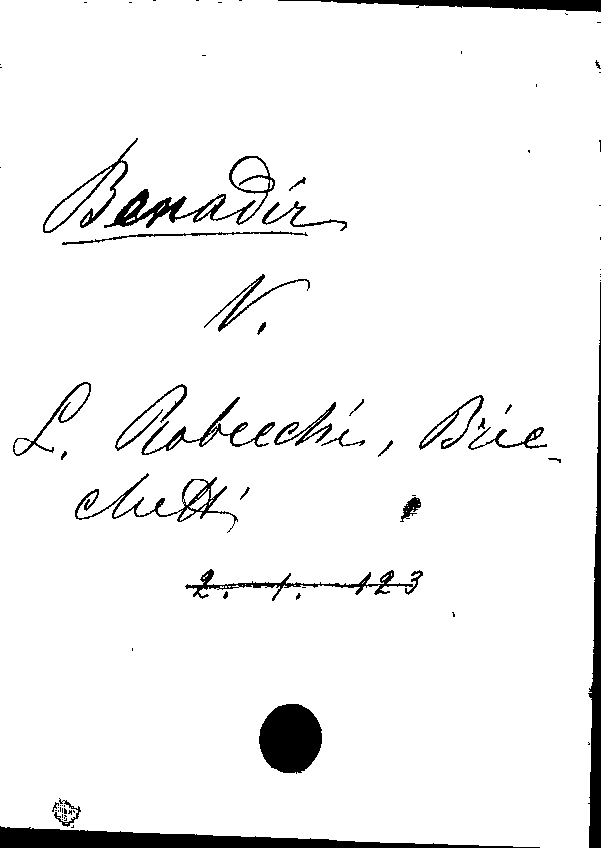 Benadir
V.
L. Robecchi, Bric-
chetti
2. 1. 123